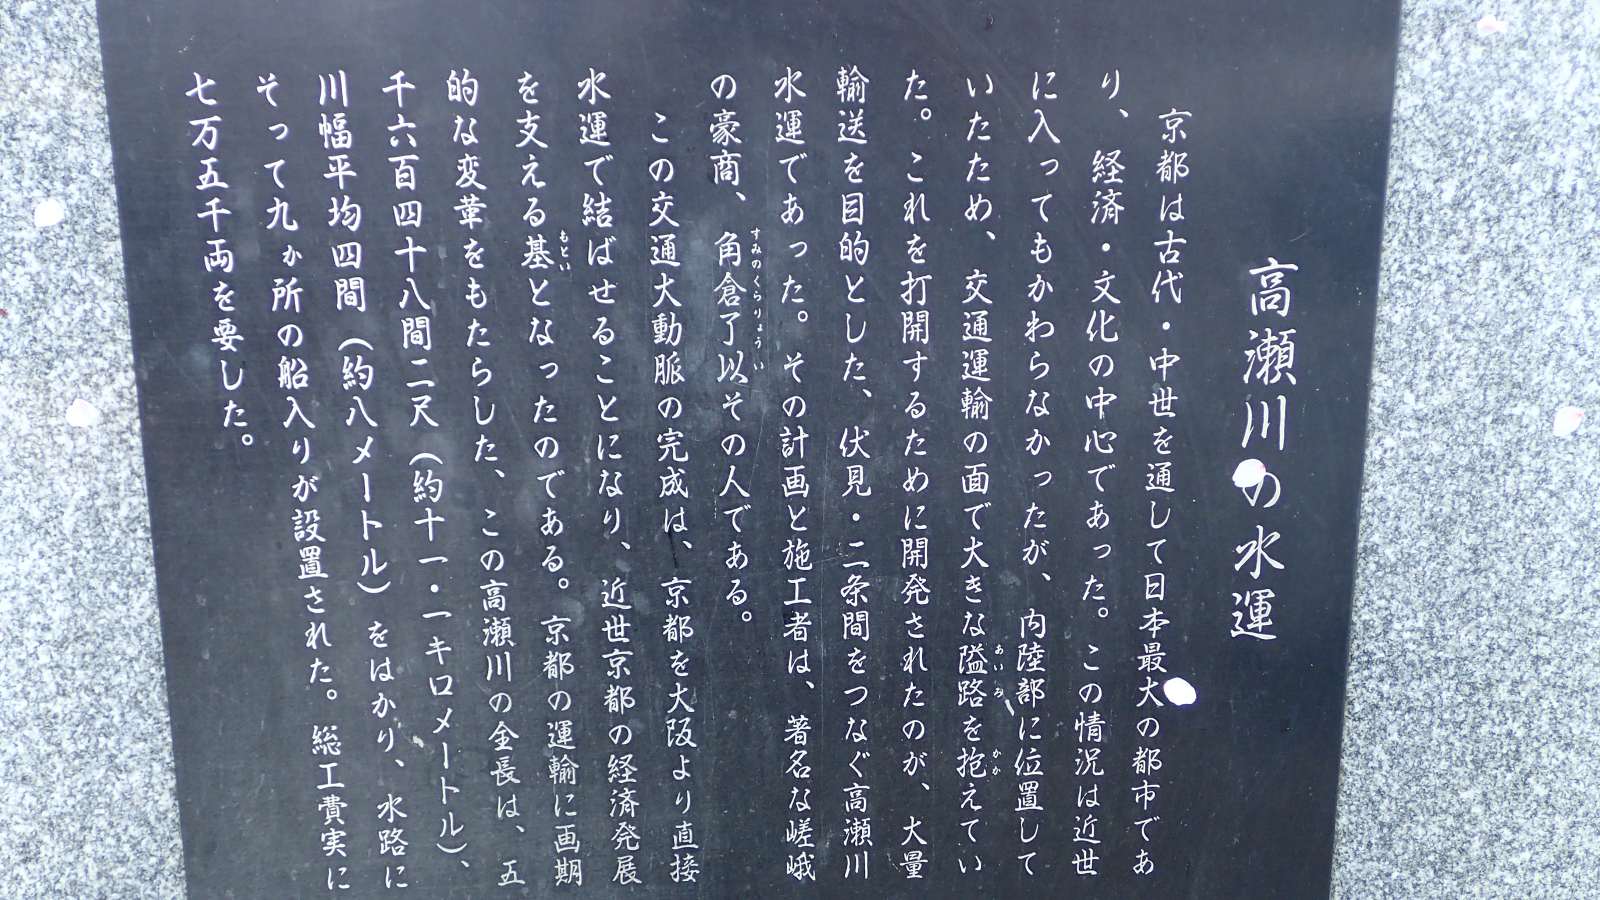 高瀬川の水運
京都は古代・中世を通して日本最大の都市であ
り、経済・文化の中心であった。この情況は近世
に入ってもかわらなかったが、内陸部に位置して
いたため、交通運輸の面で大きな隘路を抱えてい
あいろ
かか
た。これを打開するために開発されたのが、大量
輸送を目的とした、伏見・二条間をつなぐ高瀬川
水運であった。その計画と施工者は、著名な嵯峨
の豪商、角倉了以その人である。
すみのくらりょうい
この交通大動脈の完成は、京都を大阪より直接
水運で結ばせることになり、近世京都の経済発展
を支える基となったのである。京都の運輸に画期
もとい
的な変革をもたらした、この高瀬川の全長は、五
千六百四十八間二尺（約十一・一キロメートル）、
川幅平均四間（約八メートル）をはかり、水路に
そって九ヵ所の船入りが設置された。総工費実に
七万五千両を要した。